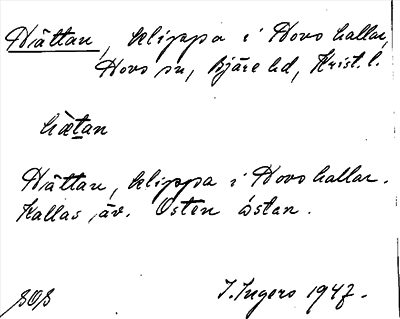 Hättan, klippa i Hovs hallar,
Hovs sn, Bjäre hd, Krist. l.
hǽtan
Hättan, klippa i Hovs hallar.
Kallas äv. Osten óstan.
SOS
I. Ingers 1947.